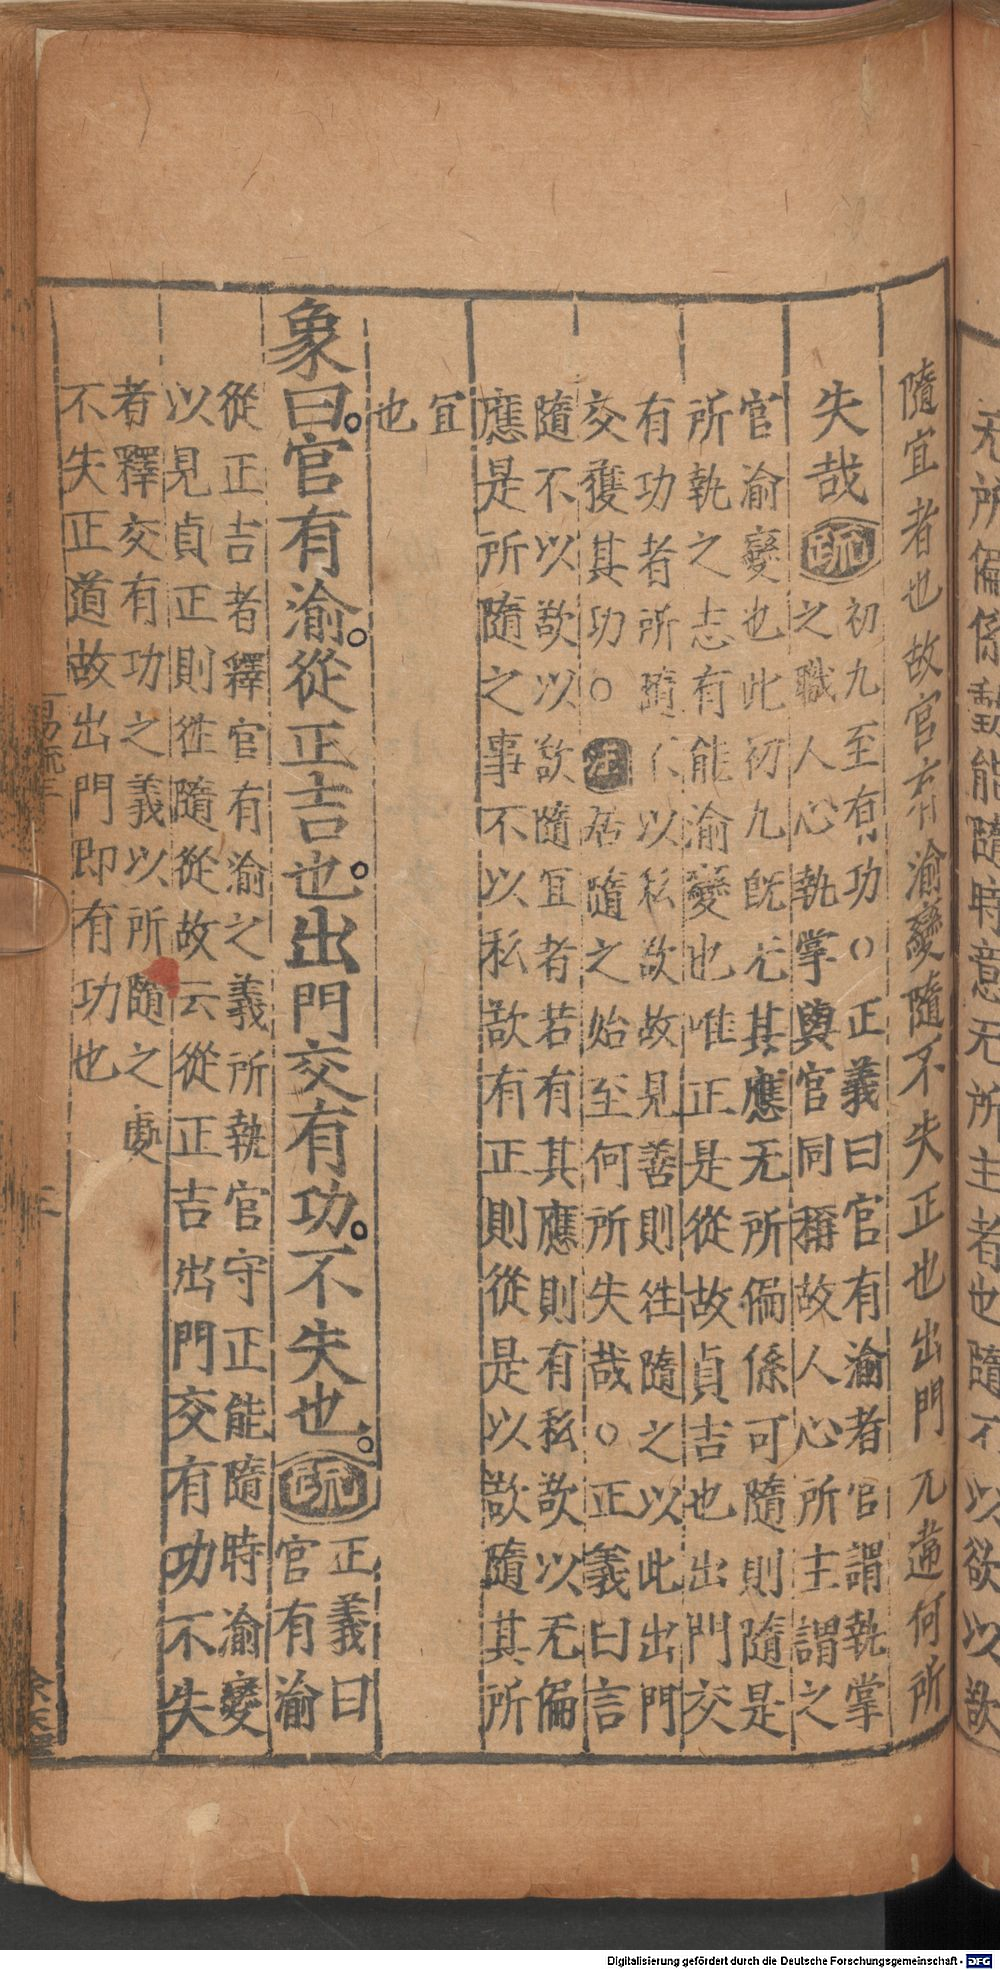 隨宜者也故官有渝變隨不失正也出門无違何所
失哉疏
初九至有功○正義曰官有渝者官謂執掌
之職人心執掌與官同稱故人心所主謂之
官渝變也此初九既无其應无所偏係可隨則隨是
所執之志有能渝變也唯正是從故貞吉也出門交
有功者所隨不以私欲故見善則往隨之以此出門
交獲其功○注居隨之始至何所失哉○正義曰言
隨不以欲以欲隨宜者若有其應則有私欲以无偏
應是所隨之事不以私欲有正則從是以欲隨其所
宜
也
象曰官有渝從正吉也出門交有功不失也疏
正義曰
官有渝
從正吉者釋官有渝之義所執官守正能隨時渝變
以見貞正則往隨從故云從正吉出門交有功不失
者釋交有功之義以所隨之處
不失正道故出門即有功也
易疏三
三
无所偏係動能隨時意无所主者也隨不以欲以欲
Digitalisierung gefördert durch die Deutsche Forschungsgemeinschaft - DFG